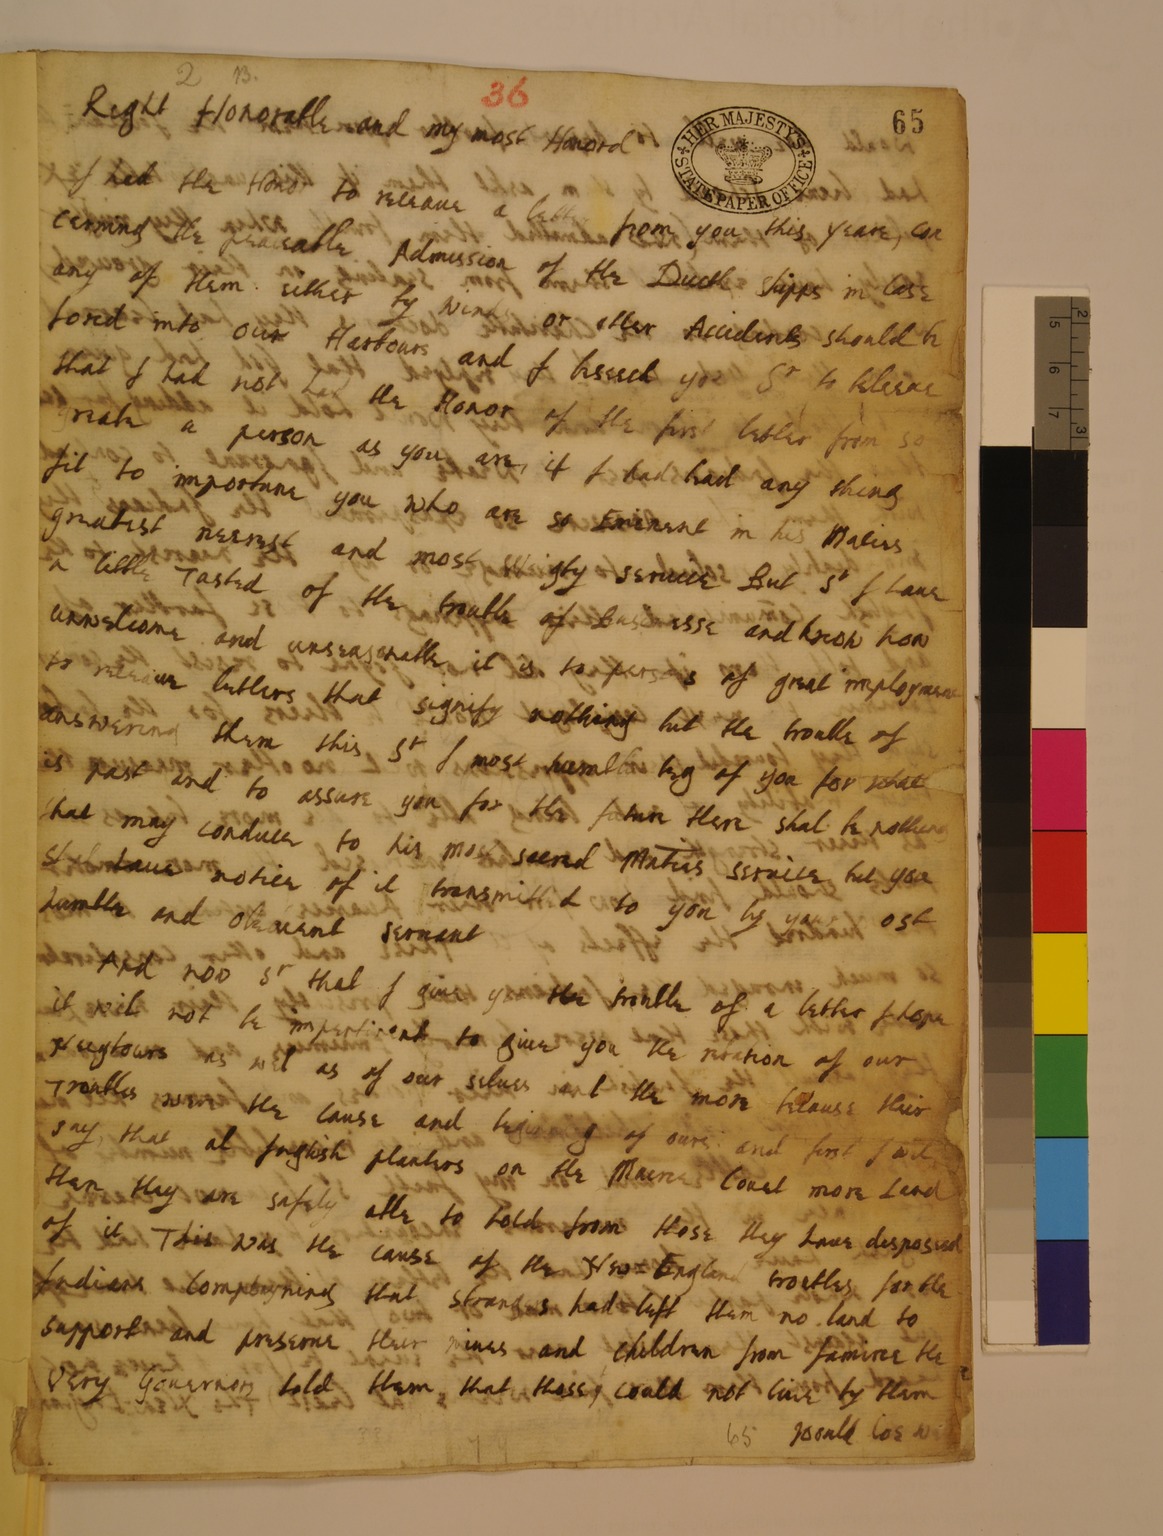 2 B.
36
65
HER MAJESTY'S STATE PAPER OFFICE
Right Honorable and my most Honord
I had the Honor to receaue a letter from you this yeare, con
cerning the peaceable Admission of the Dutch shipps in Case
any of them either by wind or other Accidents should be
forced into our Harbours and I beseech you Sr to beleeue
that I had not had the Honor of the first letter from so
greate a person as you are, if I had had any thing
fit to importune you who are so Eminent in his Maties
greatest neerest and most Wigty seruice But Sr I haue
a little Tasted of the trouble of Businesse and know how
unwelcome and unseasonable it is to persons of great imployment
to receaue letters that signify nothing but the trouble of
answering them this Sr I most humbly beg of you for what
is past and to assure you for the future there shal be nothing
that may conduce to his most sacred Maties seruice but you
shal haue notice of it transmitted to you by your most
humble and obedient seruant
And now Sr that I giue you the trouble of a letter I hope
it wil not be impertinent to giue you the relation of our
Neigbours as wel as of our selues and the more because their
Troubles were the cause and begining of ours and first I wil
say that al English planters on the Maine Couet more Land
then they are safely able to hold from those they haue disposesd
of it This was the cause of the New-England troubles for the
Indians Complayning that strangers had left them no land to
support and preserue their wiues and children from famine the
Very Gouernor told them that those could not liue by them
65
would Coe